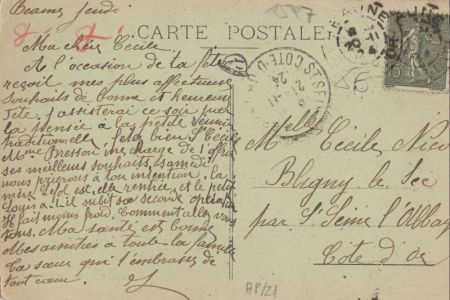 Beaune Jeudi
CARTE POSTALE
Ma chère Cécile
A l'occasion de ta fête
reçois mes plus affectueux
souhaits de bonne et heureuse
fête. J'assisterai ce soir par
la pensée à la petite réunion
traditionnelle. fête bien Ste Cécile
Mme Bresson me charge de t'offrir
ses meilleurs souhaits, samedi
nous prierons à ton intention. la
mère est-elle rentrée et le petit
Louis a-t-il subi sa seconde opération
Il fait moins froid. Comment allez vous
tous. Ma santé est bonne
Mes amitiés à toute la famille
Ta sœur qui t'embrasse de
tout cœur.
Melle Cécile
Bligny le Sec
par St Seine l'Abbaye
Côte d'or